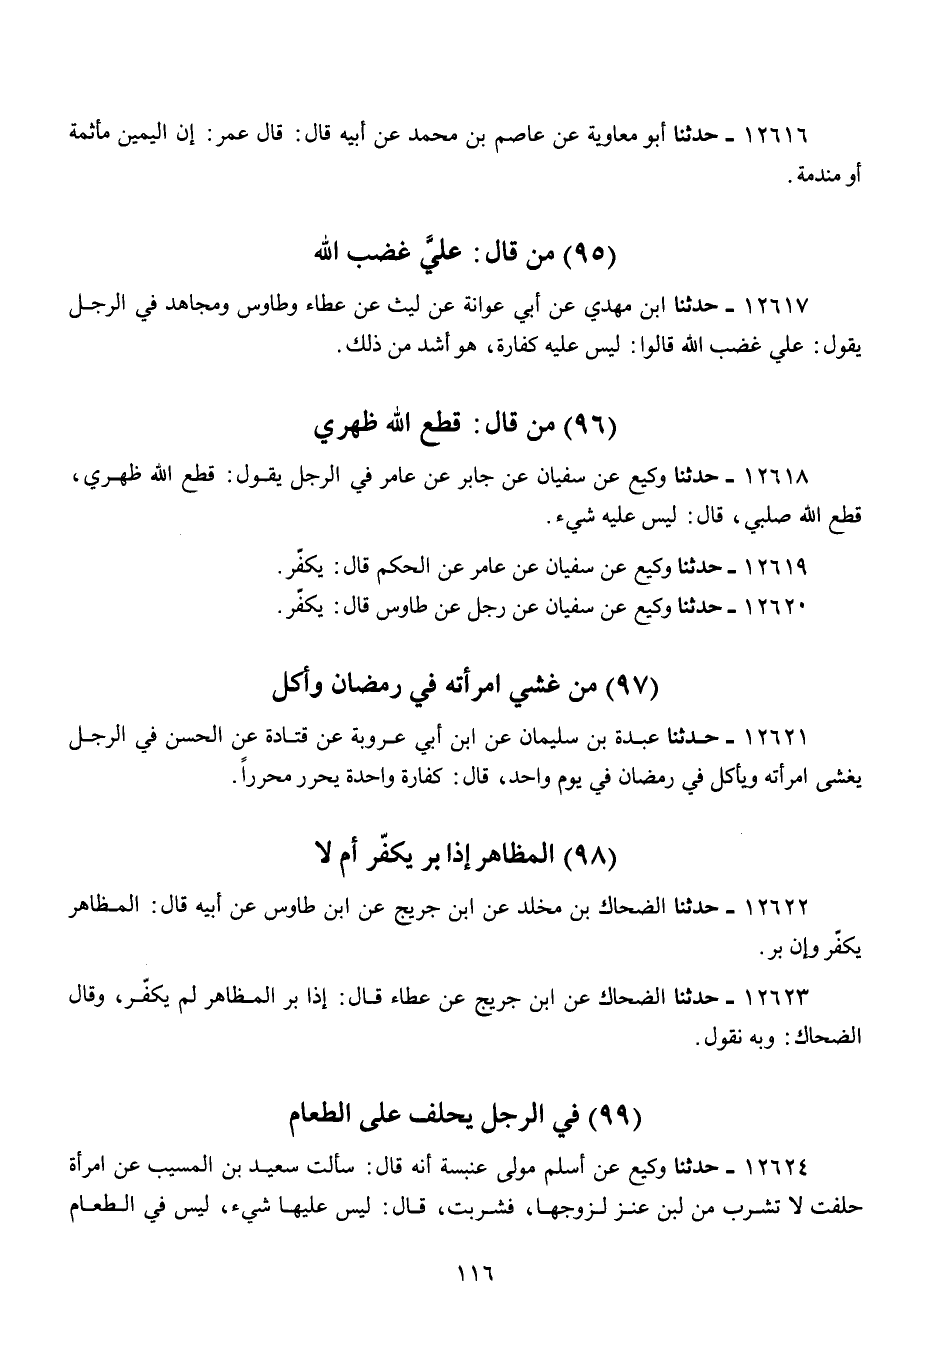 ١٢٦١٦ ـ حدثنا أبو معاوية عن عاصم بن محمد عن أبيه قال: قال عمر: إن اليمين مأثمة
أو مندمة.
(٩٥) من قال: عليَّ غضب الله
١٢٦١٧ ـ حدثنا ابن مهدي عن أبي عوانة عن ليث عن عطاء وطاوس ومجاهد في الرجل
يقول: علي غضب الله قالوا: ليس عليه كفارة، هو أشد من ذلك.
(٩٦) من قال: قطع الله ظهري
١٢٦١٨ ـ حدثنا وكيع عن سفيان عن جابر عن عامر في الرجل يقول: قطع الله ظهري،
قطع الله صلبي، قال: ليس عليه شيء.
١٢٦١٩ ـ حدثنا وكيع عن سفيان عن عامر عن الحكم قال: يكفّر.
١٢٦٢٠ ـ حدثنا وكيع عن سفيان عن رجل عن طاوس قال: يكفّر.
(٩٧) من غشي امرأته في رمضان وأكل
١٢٦٢١ ـ حدثنا عبدة بن سليمان عن ابن أبي عروبة عن قتادة عن الحسن في الرجل
يغشى امرأته ويأكل في رمضان في يوم واحد، قال: كفارة واحدة يحرر محرراً.
(٩٨) المظاهر إذا بر يكفّر أم لا
١٢٦٢٢ ـ حدثنا الضحاك بن مخلد عن ابن جريج عن ابن طاوس عن أبيه قال: المظاهر
يكفّر وإن بر.
١٢٦٢٣ ـ حدثنا الضحاك عن ابن جريج عن عطاء قال: إذا بر المظاهر لم يكفّر، وقال
الضحاك: وبه نقول.
(٩٩) في الرجل يحلف على الطعام
١٢٦٢٤ ـ حدثنا وكيع عن أسلم مولى عنبسة أنه قال: سألت سعيد بن المسيب عن امرأة
حلفت لا تشرب من لبن عنز لزوجها، فشربت، قال: ليس عليها شيء، ليس في الطعام
١١٦